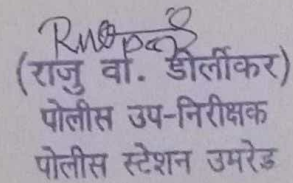 (राजु वा. डोर्लीकर)
पोलीस उप-निरीक्षक
पोलीस स्टेशन उमरेड